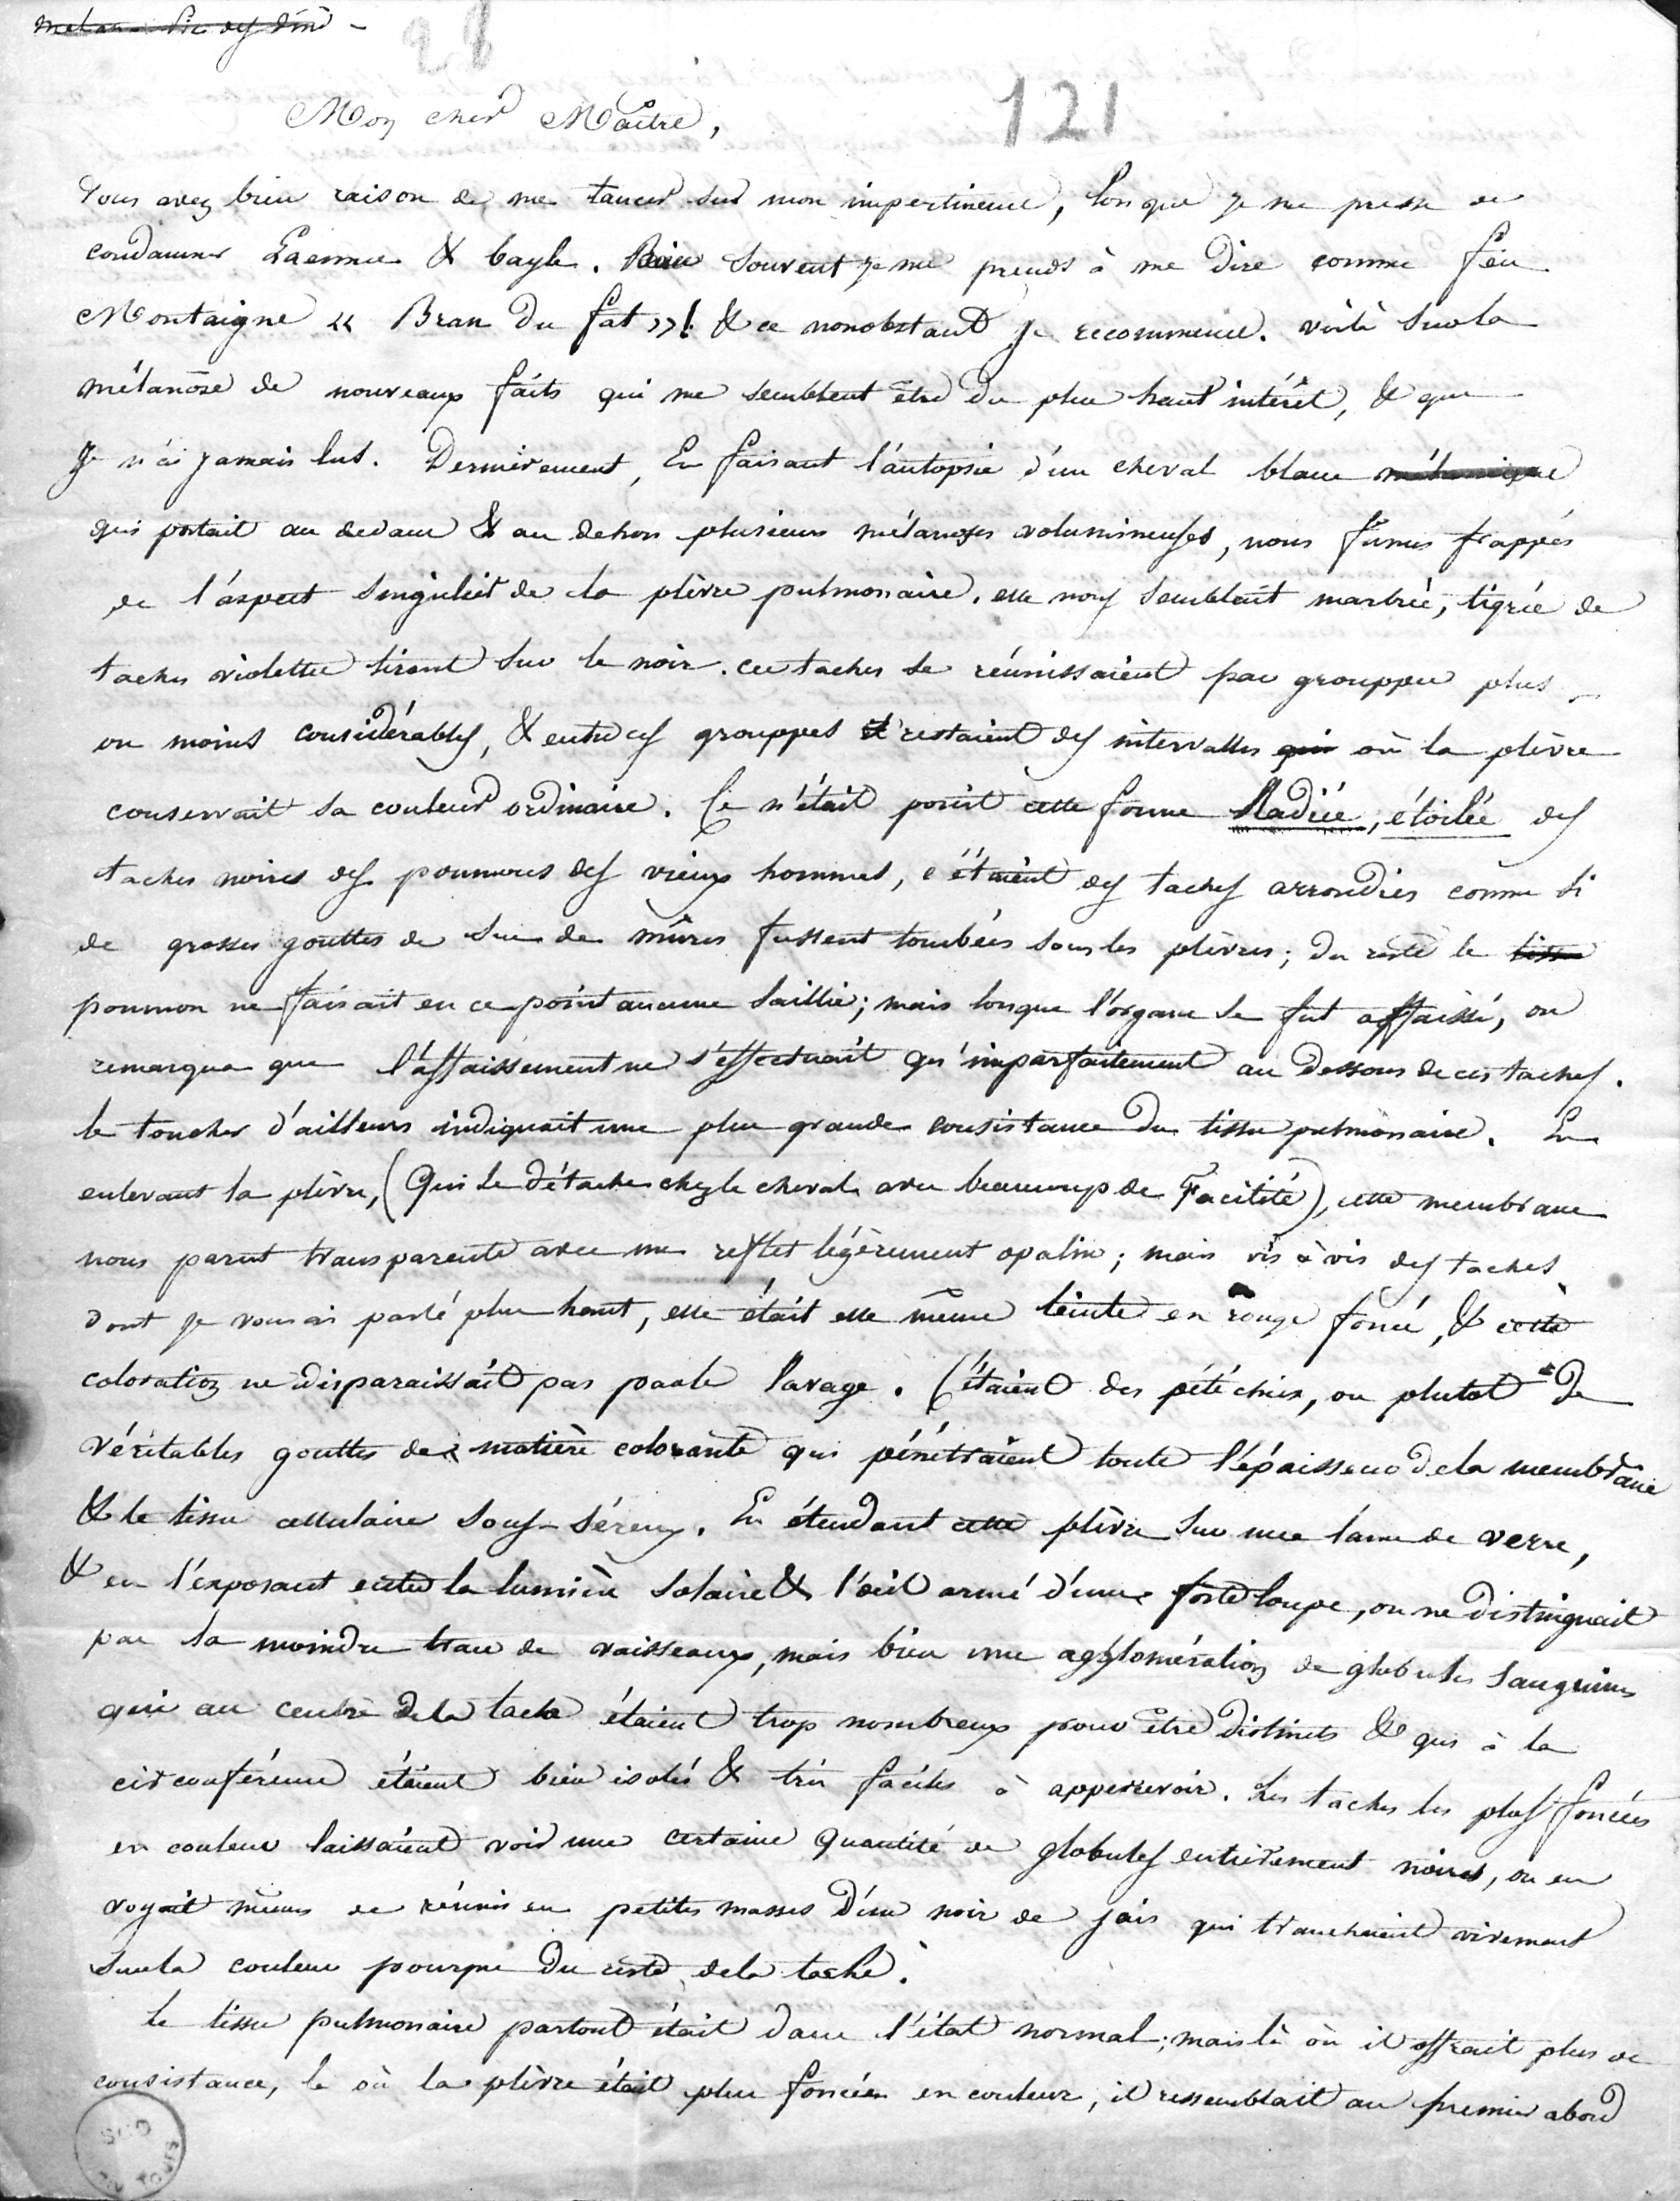 28
121
Mon cher Maître,
Vous avez bien raison de me tancer sur mon impertinence, lorsque je me presse de
condamner Laennec & bayle. Bien souvent je me prends à me dire comme feu
Montaigne « Bran du fat »! & ce nonobstant je recommence. voilà sur la
mélanose de nouveaux faits qui me semblent être du plus haut intérêt, & que
je n'ai jamais lus. Dernièrement, En faisant l'autopsie d'un cheval blanc
qui portait au dedans & au dehors plusieurs mélanoses volumineuses, nous fumes frappés
de l'aspect singulier de la plèvre pulmonaire. elle nous semblait marbrée, tigrée de
taches violettes tirant sur le noir. ces taches se réunissaient par grouppes plus
ou moins considérables, & entre ces grouppes restaient des intervalles où la plèvre
conservait sa couleur ordinaire. Ce n'était point cette forme Radiée, étoilée des
taches noires des poumons des vieux hommes, c'étaient des taches arrondies comme si
de grosses gouttes de suc de mûres fussent tombées sous les plèvres; du reste le
poumon ne faisait en ce point aucune saillie; mais lorsque l'organe se fut affaissé, on
remarqua que l'affaissement ne s'effectuait qu'imparfaitement au dessous de ces taches.
le toucher d'ailleurs indiquait une plus grande consistance du tissu pulmonaire. En
enlevant la plèvre, (Qui se détache chez le cheval avec beaucoup de Facilité), cette membrane
nous parut transparente avec un reflet légèrement opalin; mais vis à vis des taches
dont je vous ai parlé plus haut, elle était elle même teinte en rouge foncé, & cette
coloration ne disparaissait pas par le lavage. C'étaient des pétéchies, ou plutot de
véritables gouttes de matière colorante qui pénétraient toute l'épaisseur de la membrane
& le tissu cellulaire sous-séreux. En étendant cette plèvre sur une lame de verre,
& en l'exposant entre la lumière solaire & l'œil armé d'une forte loupe, on ne distinguait
pas la moindre trace de vaisseaux, mais bien une agglomération de globules sanguins
qui au centre de la tache étaient trop nombreux pour être distincts & qui à la
circonférence étaient bien isolés & très faciles à appercevoir. Les taches les plus foncées
en couleur laissaient voir une certaine quantité de globules entièrement noires, on en
voyait même de réunis en petites masses d'un noir de jais qui tranchaient vivement
sur la couleur pourpre du reste de la tache.
Le tissu pulmonaire partout était dans l'état normal; mais là où il offrait plus de
consistance, là où la plèvre était plus foncée en couleur, il ressemblait au premier abord